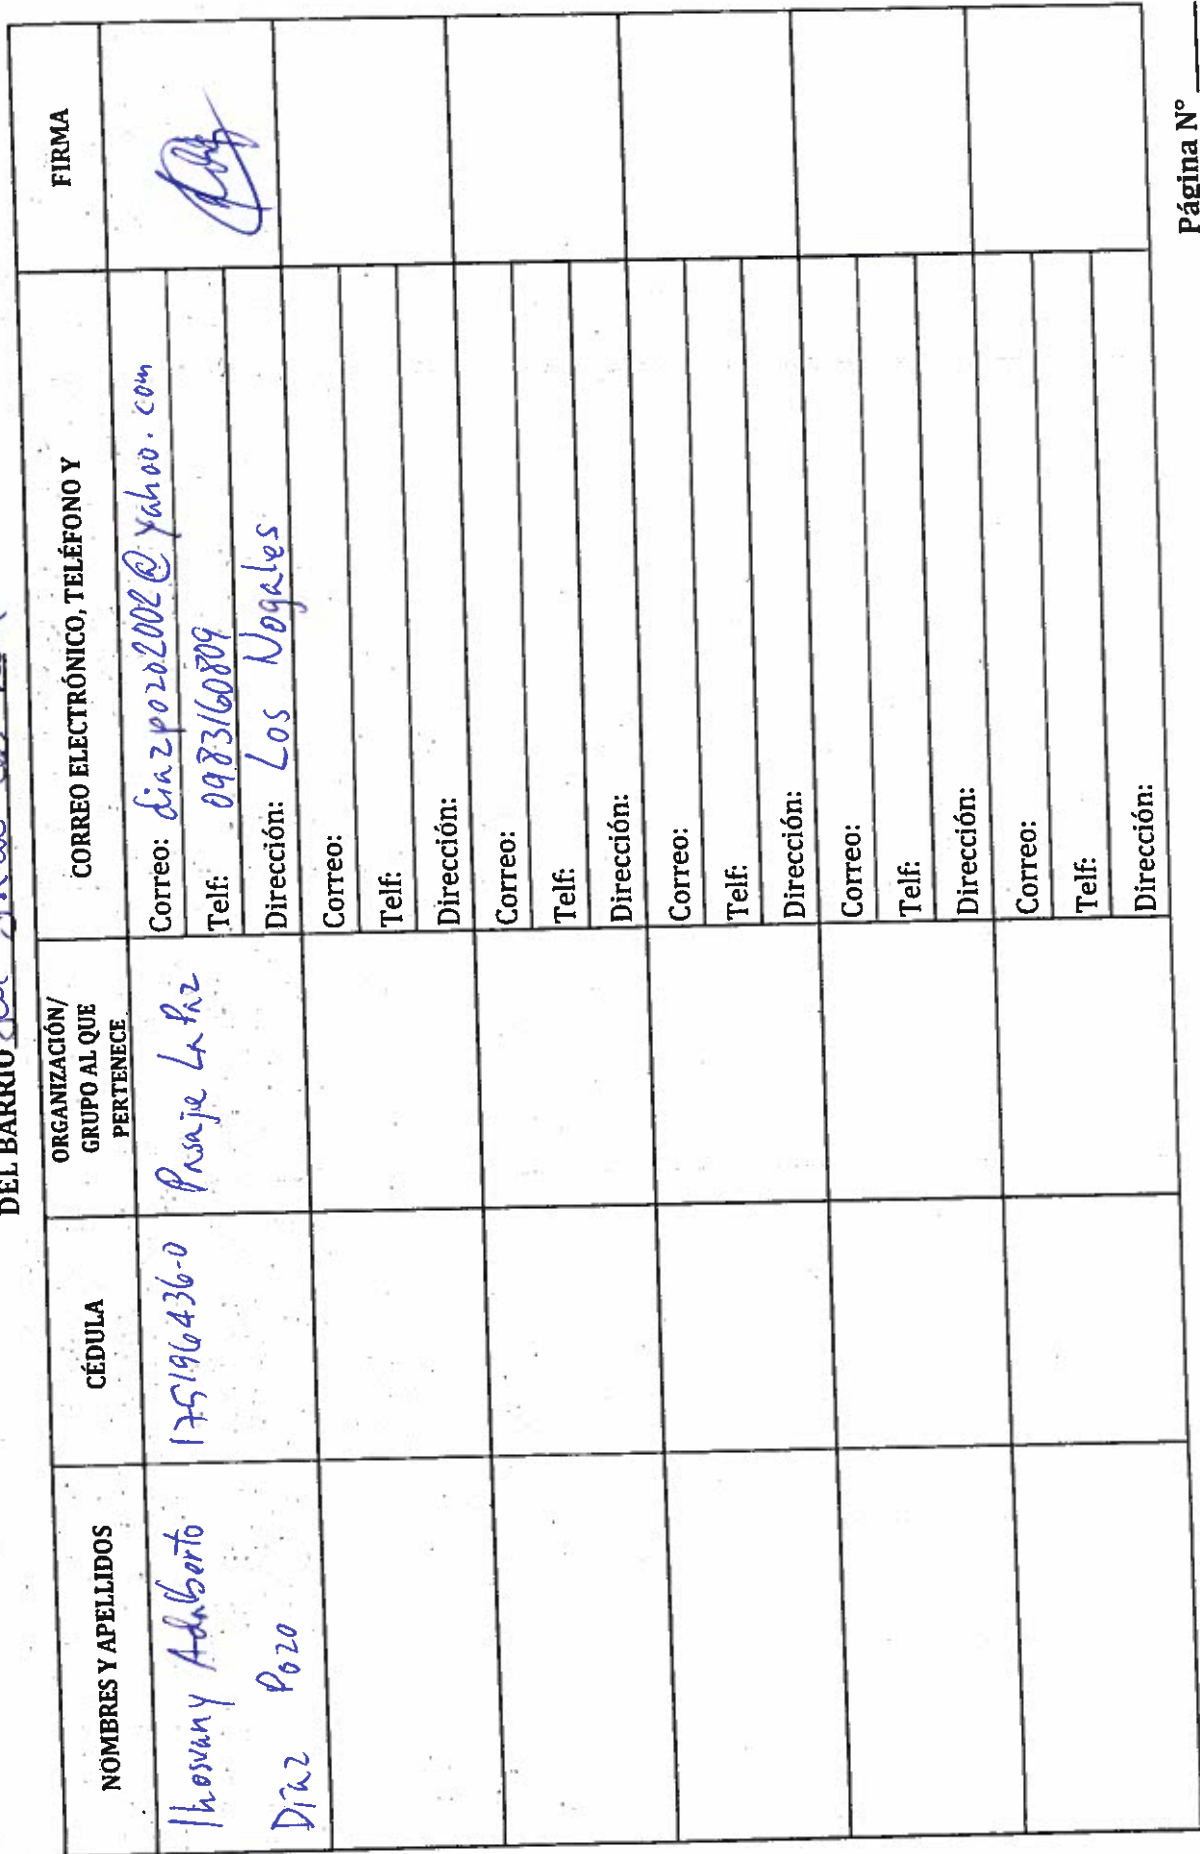 DEL BARRIO
NOMBRES Y APELLIDOS
CÉDULA
ORGANIZACIÓN/
GRUPO AL QUE
PERTENECE
CORREO ELECTRÓNICO, TELÉFONO Y
FIRMA
Ihosvany Adalberto
Díaz Pozo
175196436-0
Pasaje La Paz
Correo: diazpozo2002@yahoo.com
Telf: 0983160809
Dirección: Los Nogales
Correo:
Telf:
Dirección:
Correo:
Telf:
Dirección:
Correo:
Telf:
Dirección:
Correo:
Telf:
Dirección:
Correo:
Telf:
Dirección:
Página N°